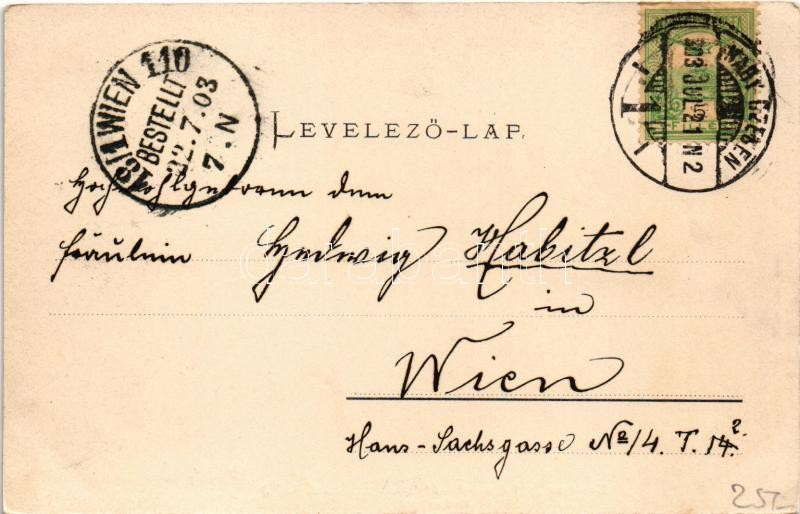 18/1 WIEN 110
BESTELLT
22.7.03
7.N
NAGY SZEBEN
903 JUL 21 N 2
LEVELEZŐ-LAP.
Hochwohlgeboren dem
Fräulein Hedwig Habitzl
in
Wien
Hans-Sachsgasse No/4. T. 14. 2
darabanth
25-